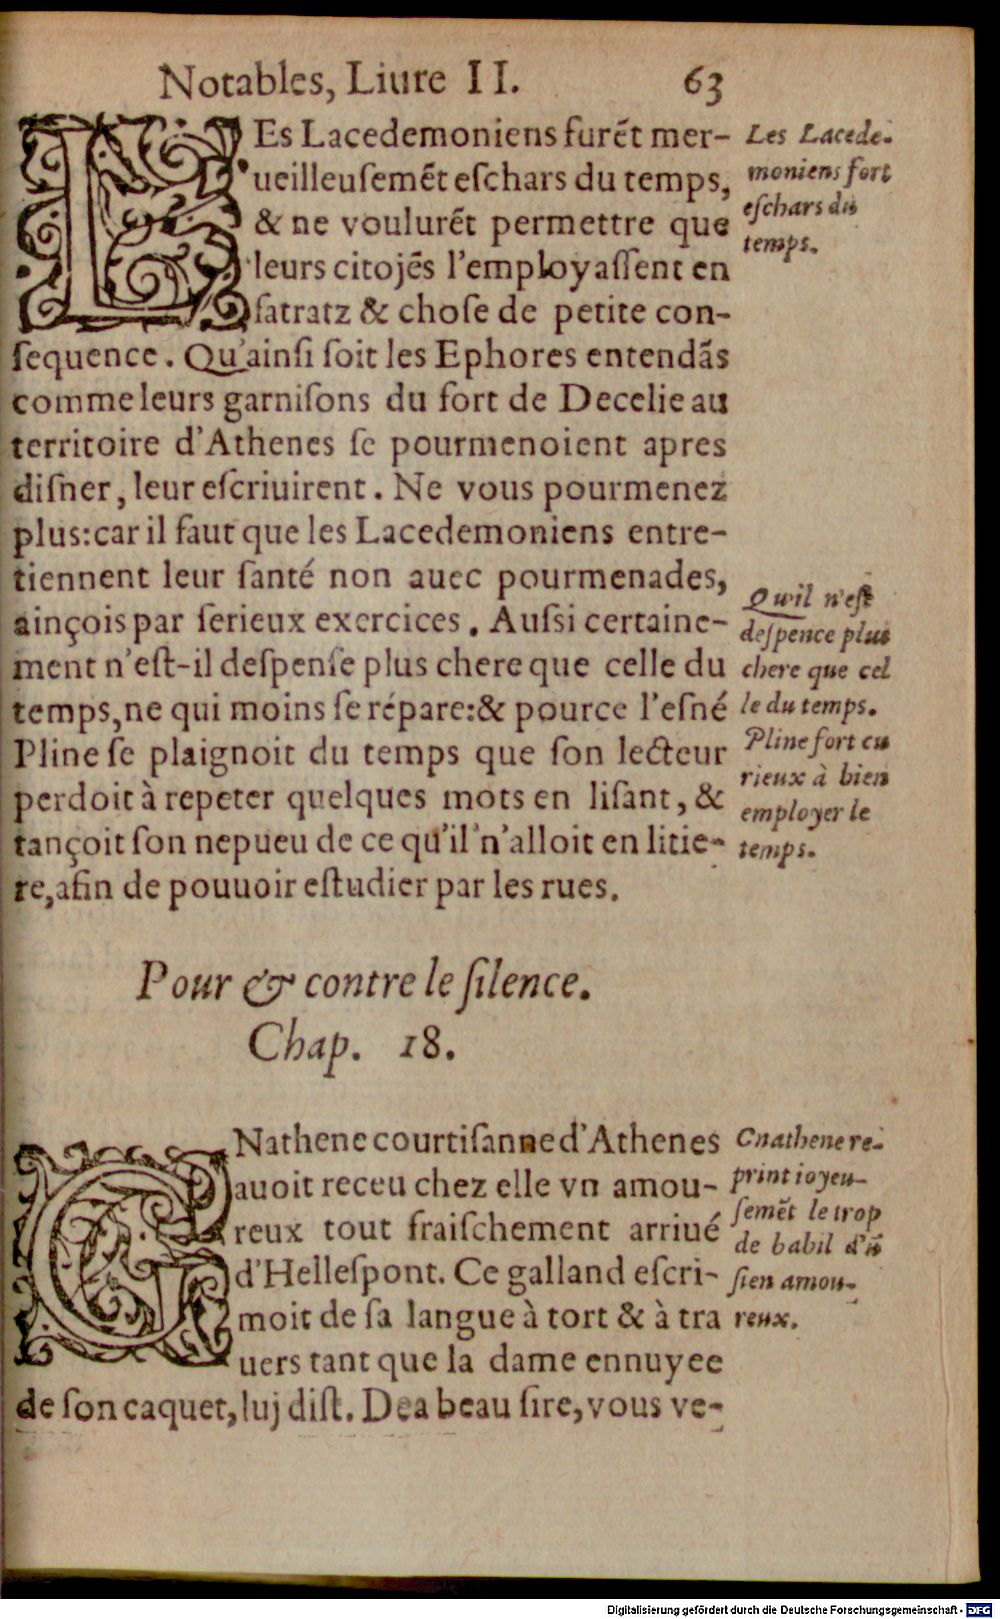 Notables, Liure II. 63
LEs Lacedemoniens furẽt mer-
ueilleusemẽt eschars du temps,
& ne voulurẽt permettre que
leurs citojẽs l'employassent en
fatratz & chose de petite con-
sequence. Qu'ainsi soit les Ephores entendãs
comme leurs garnisons du fort de Decelie au
territoire d'Athenes se pourmenoient apres
disner, leur escriuirent. Ne vous pourmenez
plus: car il faut que les Lacedemoniens entre-
tiennent leur santé non auec pourmenades,
ainçois par serieux exercices. Aussi certaine-
ment n'est-il despense plus chere que celle du
temps, ne qui moins se répare: & pource l'esné
Pline se plaignoit du temps que son lecteur
perdoit à repeter quelques mots en lisant, &
tançoit son nepueu de ce qu'il n'alloit en litie-
re, afin de pouuoir estudier par les rues.
Les Lacede-
moniens fort
eschars du
temps.
Qu'il n'est
despence plus
chere que cel
le du temps.
Pline fort cu
rieux à bien
employer le
temps.
Pour & contre le silence.
Chap. 18.
GNathene courtisanne d'Athenes
auoit receu chez elle vn amou-
reux tout fraischement arriué
d'Hellespont. Ce galland escri-
moit de sa langue à tort & à tra
uers tant que la dame ennuyee
de son caquet, luj dist. Dea beau sire, vous ve-
Gnathene re-
print ioyeu-
semẽt le trop
de babil d'ũ
sien amou-
reux.
Digitalisierung gefördert durch die Deutsche Forschungsgemeinschaft - DFG